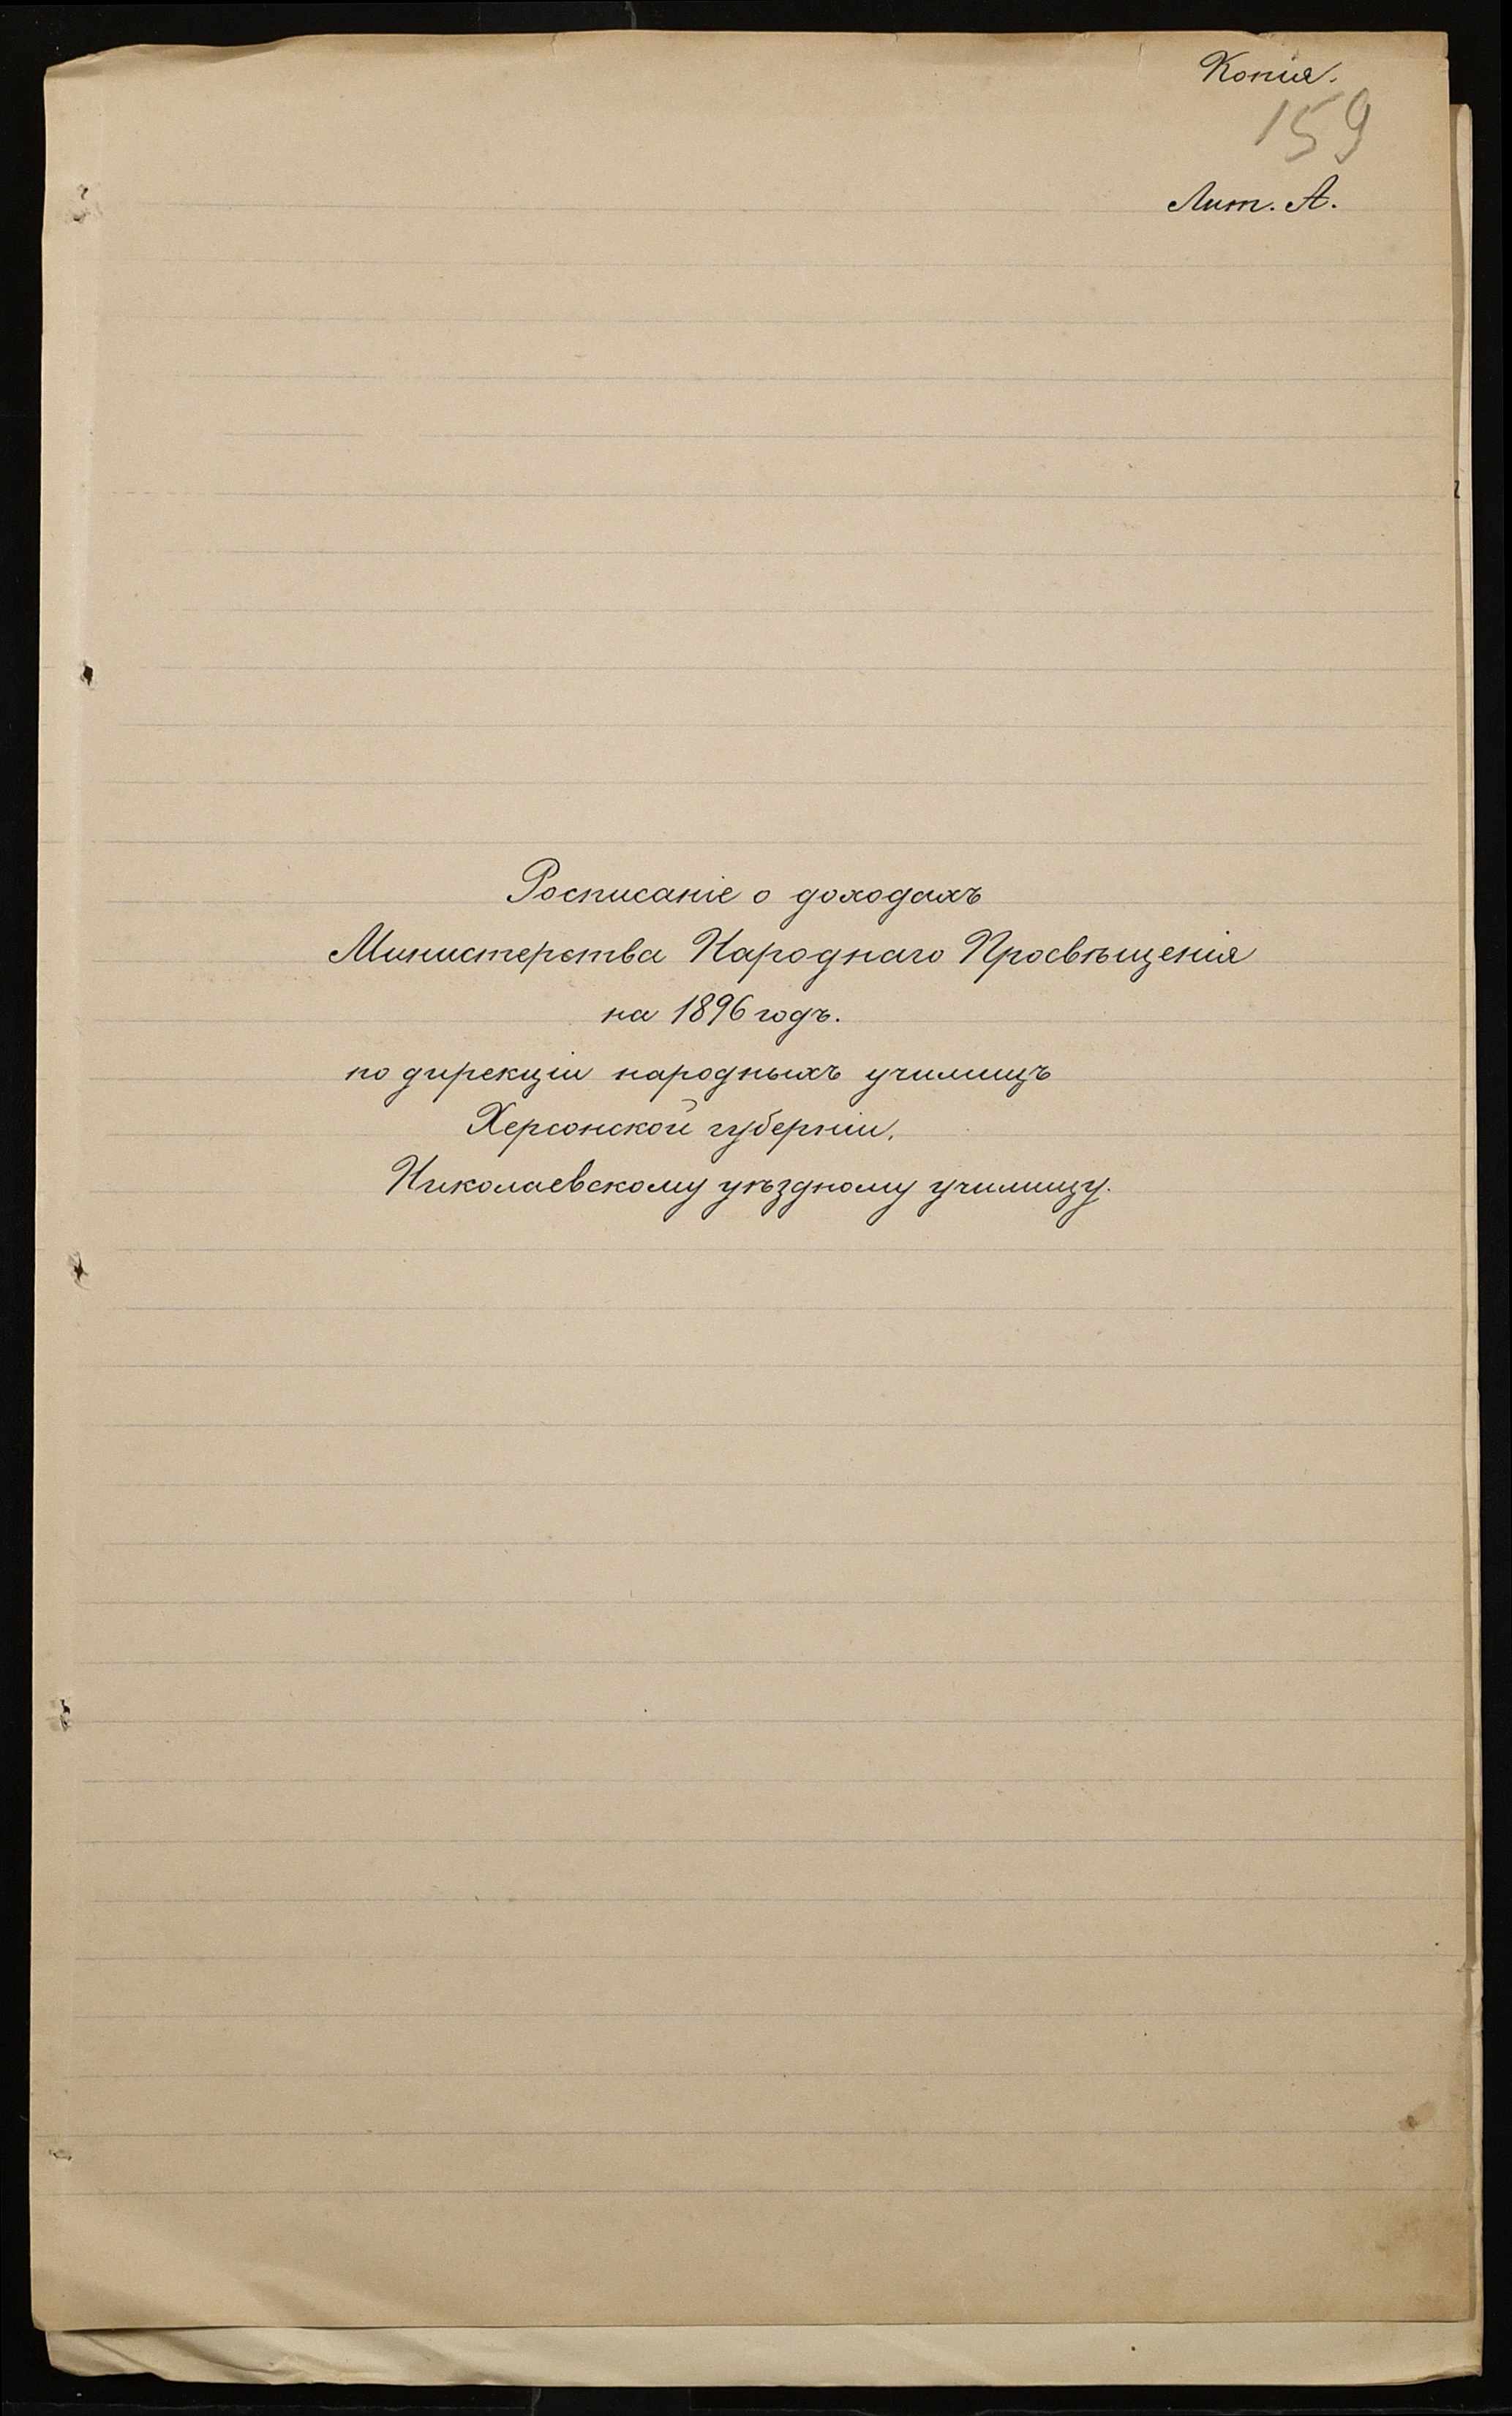 Копія.
159
Лит. А.
Росписаніе о доходахъ
Министерства Народнаго Просвѣщенія
на 1896 годъ.
по дирекціи народныхъ училищъ
Херсонской губерніи.
Николаевскому уѣздному училищу.